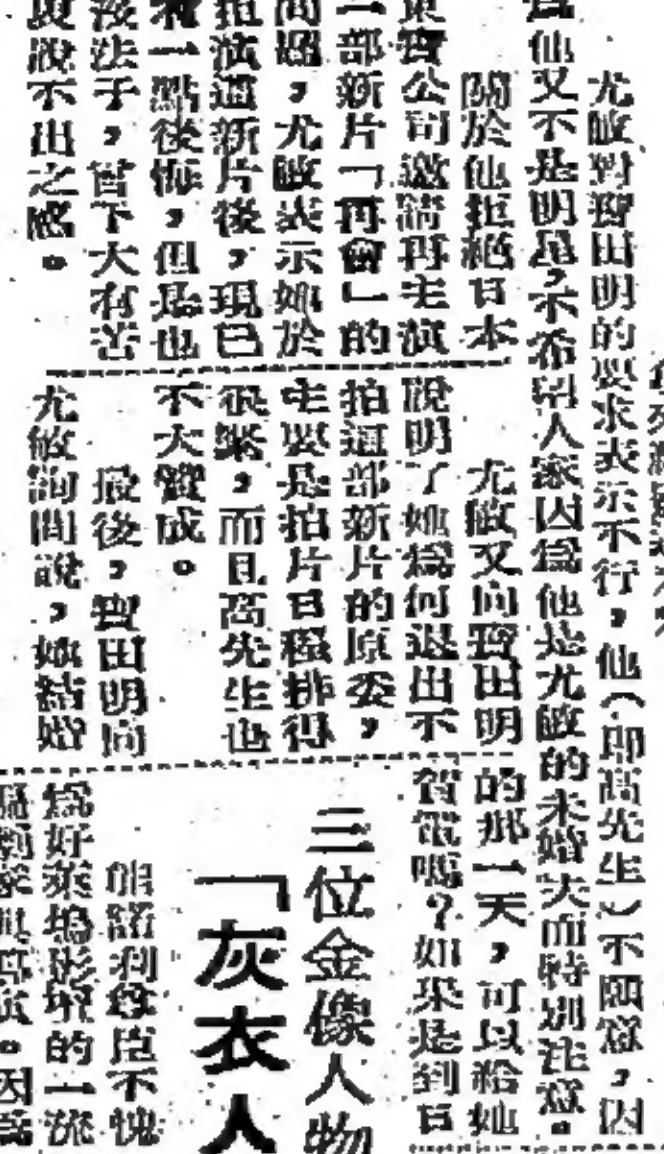 尤敏對寶田明的要求表示不行,他(即高先生)不願意,因
爲他又不是明星,不希望人家因爲他是尤敏的未婚夫而特別注意。
關於他拒絕日本
東寶公司邀請再主演
一部新片「再會」的
問題,尤敏表示她於
拒演這新片後,現已
有一點後悔,但是也
沒法子,當下大有苦
說不出之感。
尤敏又向寶田明
說明了她爲何退出不
拍這部新片的原委,
主要是拍片日程排得
很緊,而且高先生也
不大贊成。
最後,寶田明向
尤敏詢問說,她結婚
的那一天,可以給她
賀電嗎?如果是到日
三位金像人物
「灰衣人
不愧
爲好萊塢影壇的一流